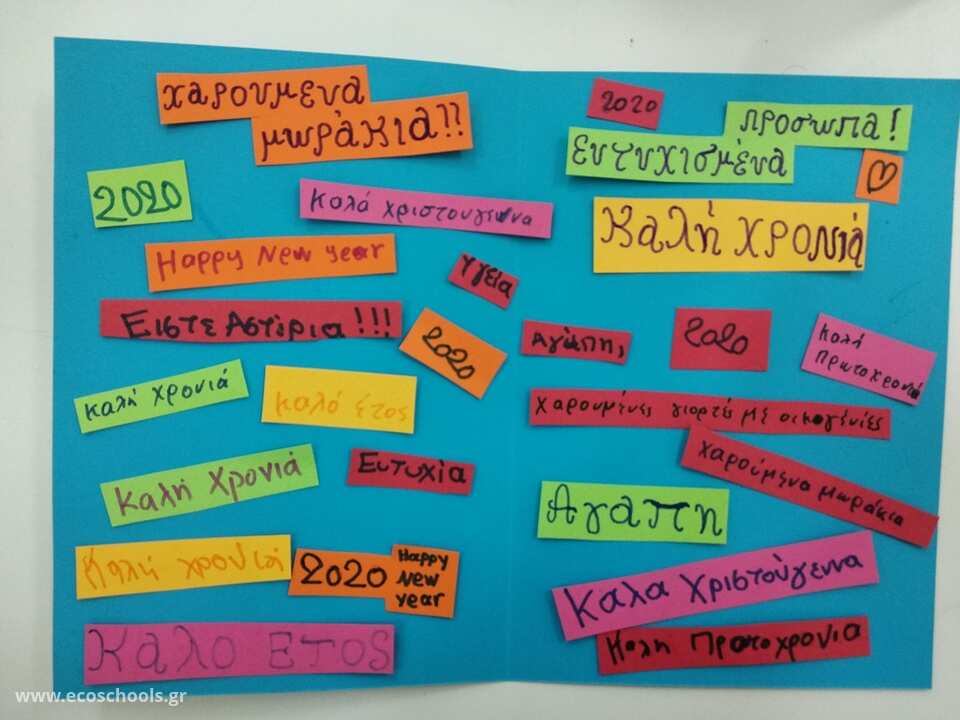 χαρουμενα
μωράκια!!
2020
Καλά χριστουγεννα
Happy New year
Ειστε Αστέρια!!!
2020
καλή χρονιά
καλό έτος
Καλή χρονιά
Ευτυχία
Καλή χρονιά
2020
Happy
New
year
ΚΑΛΟ ΕΤΟΣ
2020
προσωπα!
ευτυχισμένα
Καλή χρονιά
Υγεία
Αγάπη,
2020
Καλή
Πρωτοχρονιά
χαρουμένες γιορτές με οικογένιες
χαρούμενα μωράκια
Αγαπη
Καλα Χριστούγεννα
Καλη Πρωτοχρονια
www.ecoschools.gr